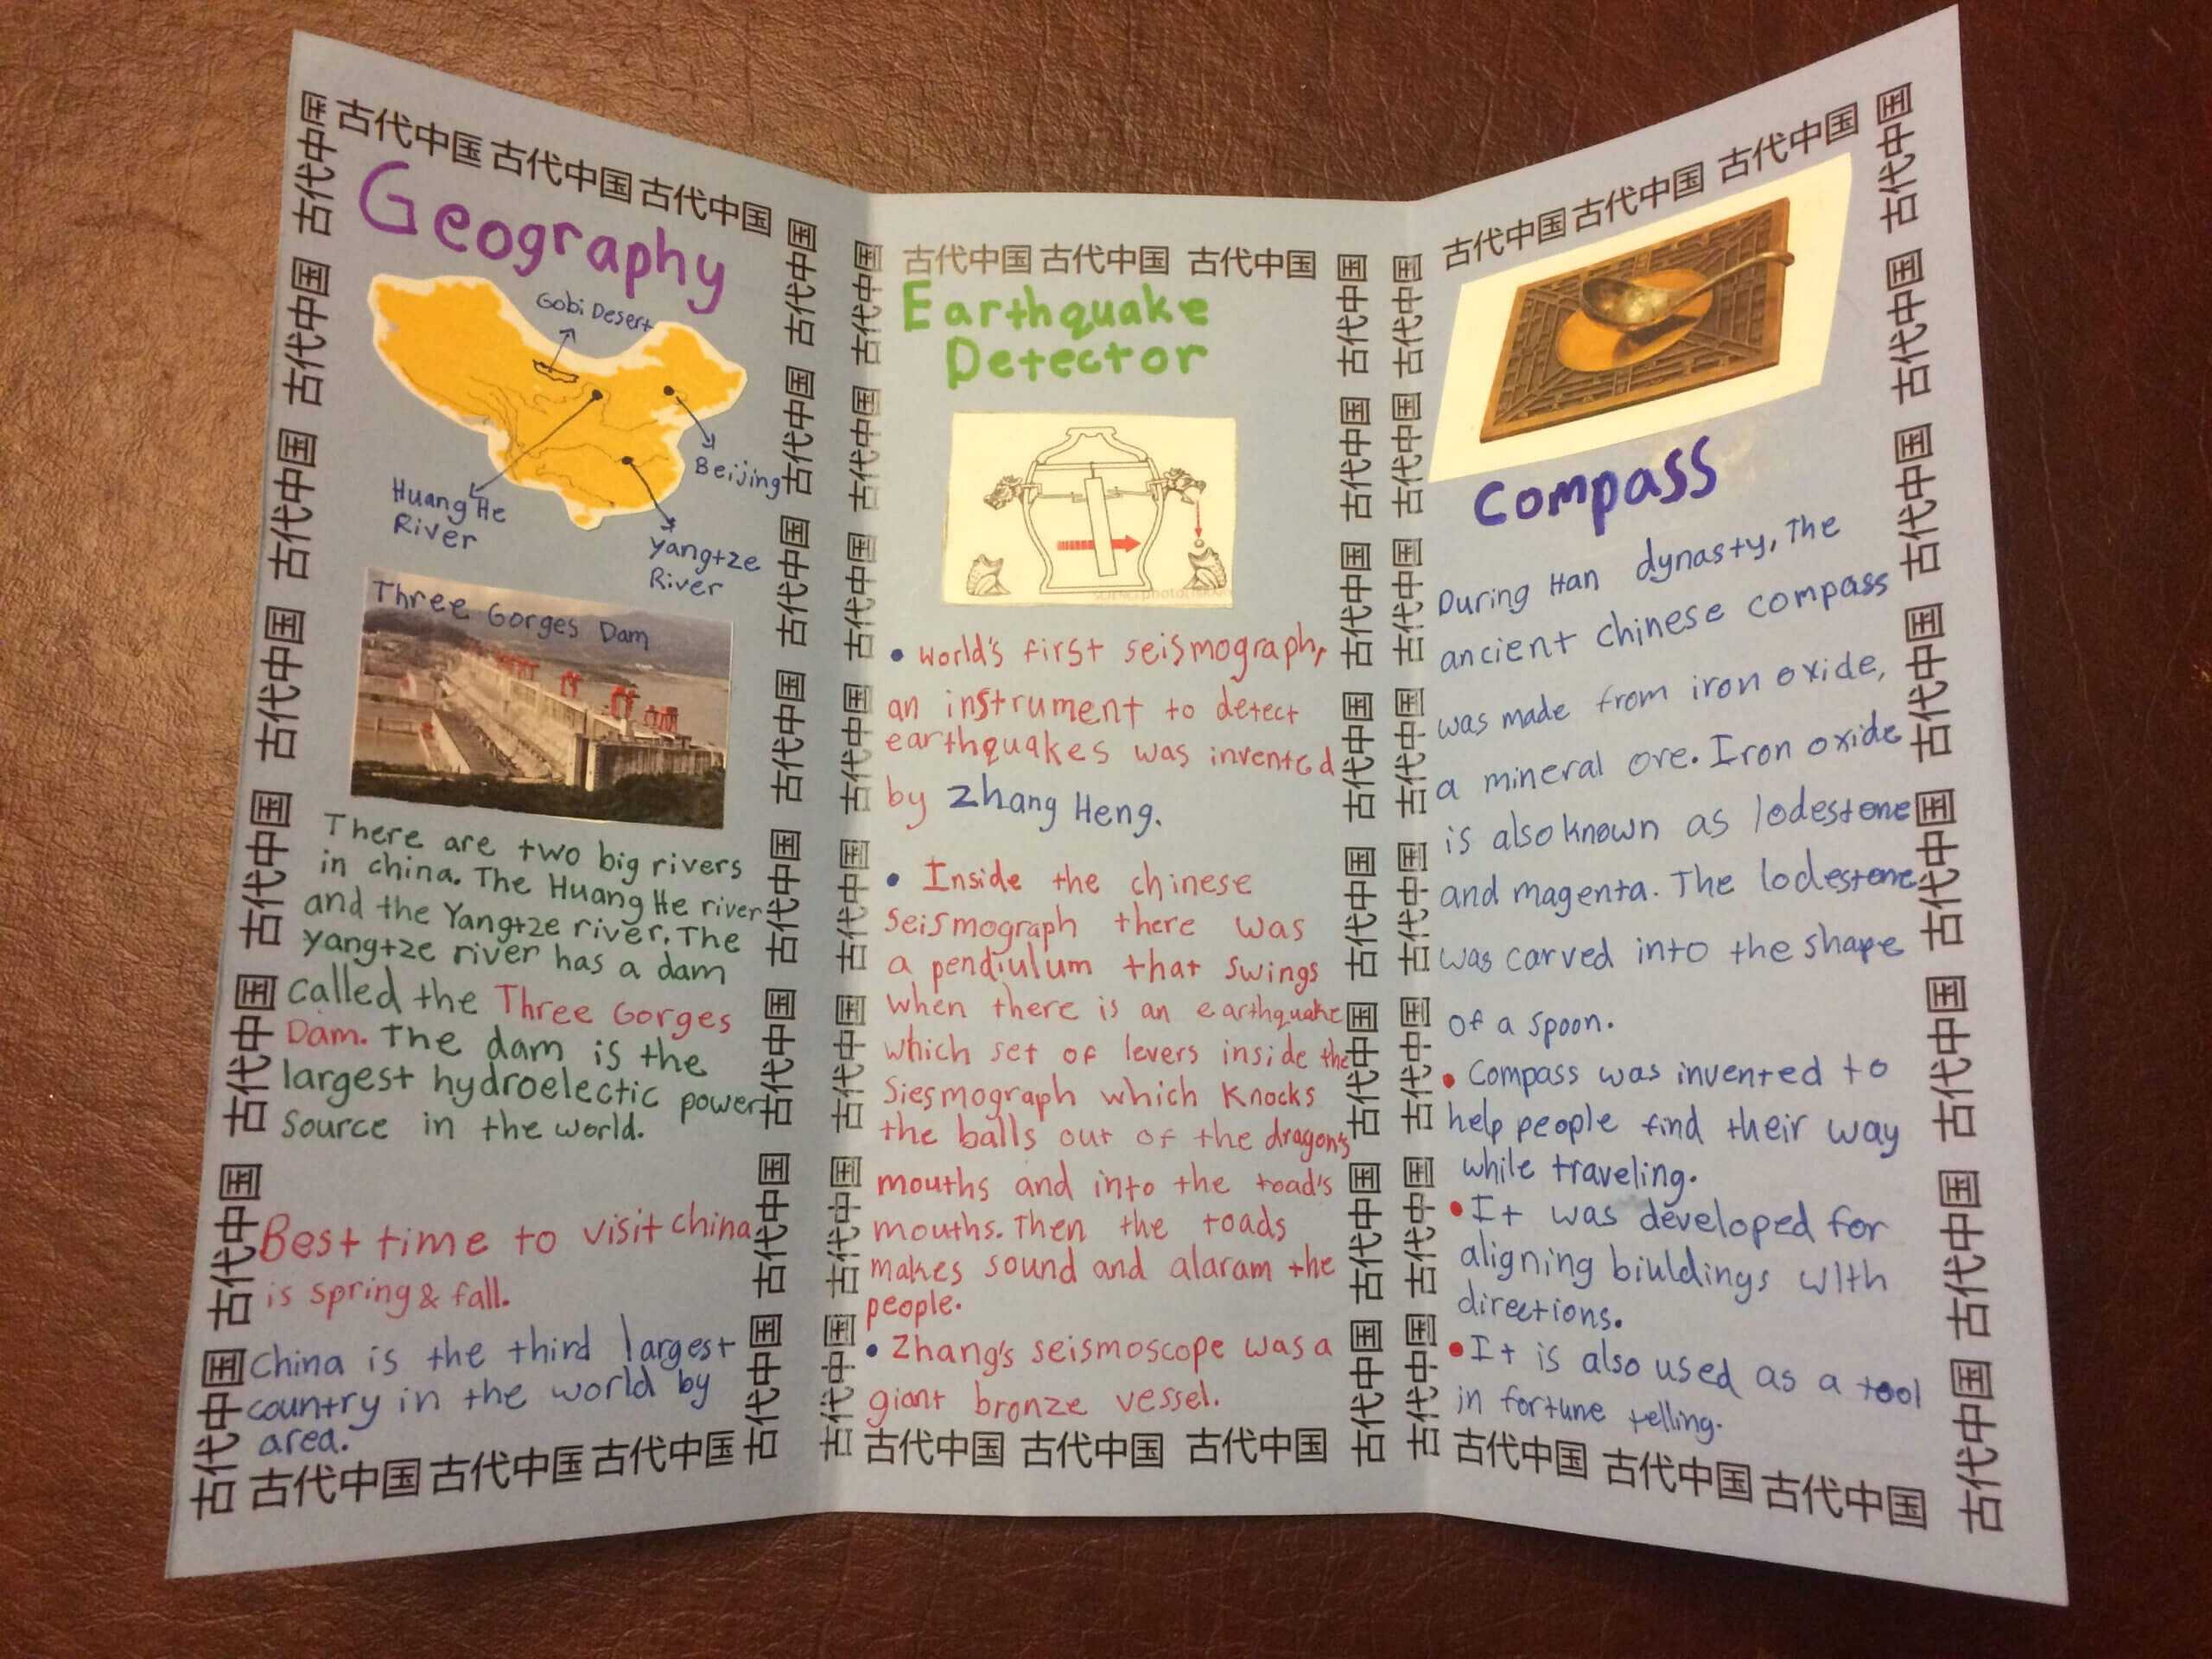 古代中国 古代中国 古代中国
Geography
Gobi Desert
Beijing
Huang He
River
Yangtze
River
Three Gorges Dam
There are two big rivers
in china. The Huang He river
and the Yangtze river. The
Yangtze river has a dam
called the Three Gorges
Dam. The dam is the
largest hydroelectic power
source in the world.
Best time to visit china
is spring & fall.
China is the third largest
country in the world by
area.
古代中国 古代中国 古代中国
古代中国 古代中国 古代中国 古代中国 古代中国 古代中国 古代中国 古代中国
古代中国 古代中国 古代中国 古代中国 古代中国 古代中国 古代中国 古代中国
古代中国 古代中国 古代中国
Earthquake
Detector
• World's first seismograph,
an instrument to detect
earthquakes was invented
by Zhang Heng.
• Inside the chinese
seismograph there was
a pendiulum that swings
when there is an earthquake
which set of levers inside the
Siesmograph which knocks
the balls out of the dragon's
mouths and into the toad's
mouths. Then the toads
makes sound and alaram the
people.
• Zhang's seismoscope was a
giant bronze vessel.
古代中国 古代中国 古代中国
古代中国 古代中国 古代中国 古代中国 古代中国 古代中国 古代中国 古代中国
古代中国 古代中国 古代中国 古代中国 古代中国 古代中国 古代中国 古代中国
古代中国 古代中国 古代中国
Compass
During Han dynasty, The
ancient chinese compass
was made from iron oxide,
a mineral ore. Iron oxide
is also known as lodestone
and magenta. The lodestone
was carved into the shape
of a spoon.
• Compass was invented to
help people find their way
while traveling.
• It was developed for
aligning biuldings with
directions.
• It is also used as a tool
in fortune telling.
古代中国 古代中国 古代中国
古代中国 古代中国 古代中国 古代中国 古代中国 古代中国 古代中国 古代中国
古代中国 古代中国 古代中国 古代中国 古代中国 古代中国 古代中国 古代中国